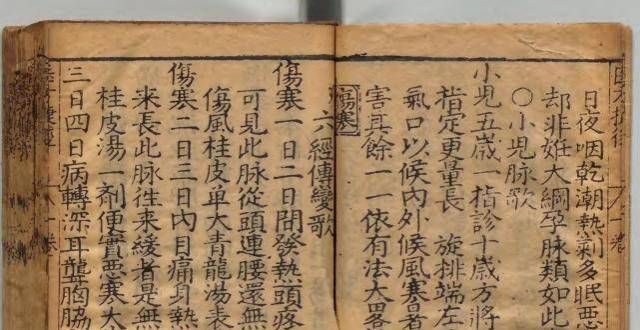 日夜咽乾潮熱多眠悪
却非姙大綱孕脉類如此
〇小児脉歌
小児五歳一指診十歳方將
指定更量長 旋排端左
氣口以候內外候風寒暑
害其餘一一依有法大畧
傷寒
六經傳變歌
傷寒一日二日間發熱頭疼
可見此脉從頭連腰還無
傷風桂皮单大青龍湯表
傷寒二日三日內目痛身熱
来長此脉徃来緩者是無
桂皮湯一剂便實悪寒太
三日四日病轉深耳聾胸脇